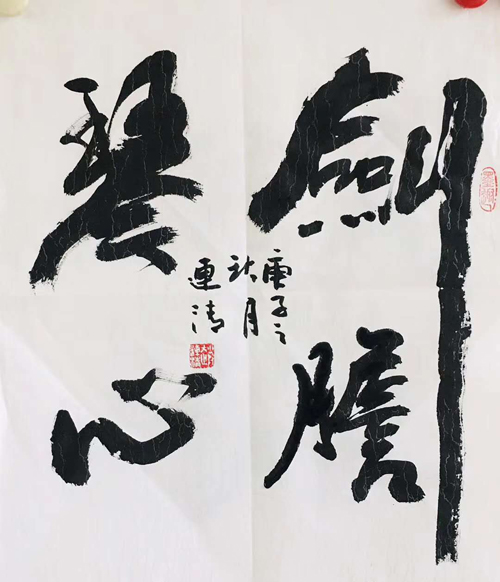 劍膽
琴心
庚子之
秋月
連清